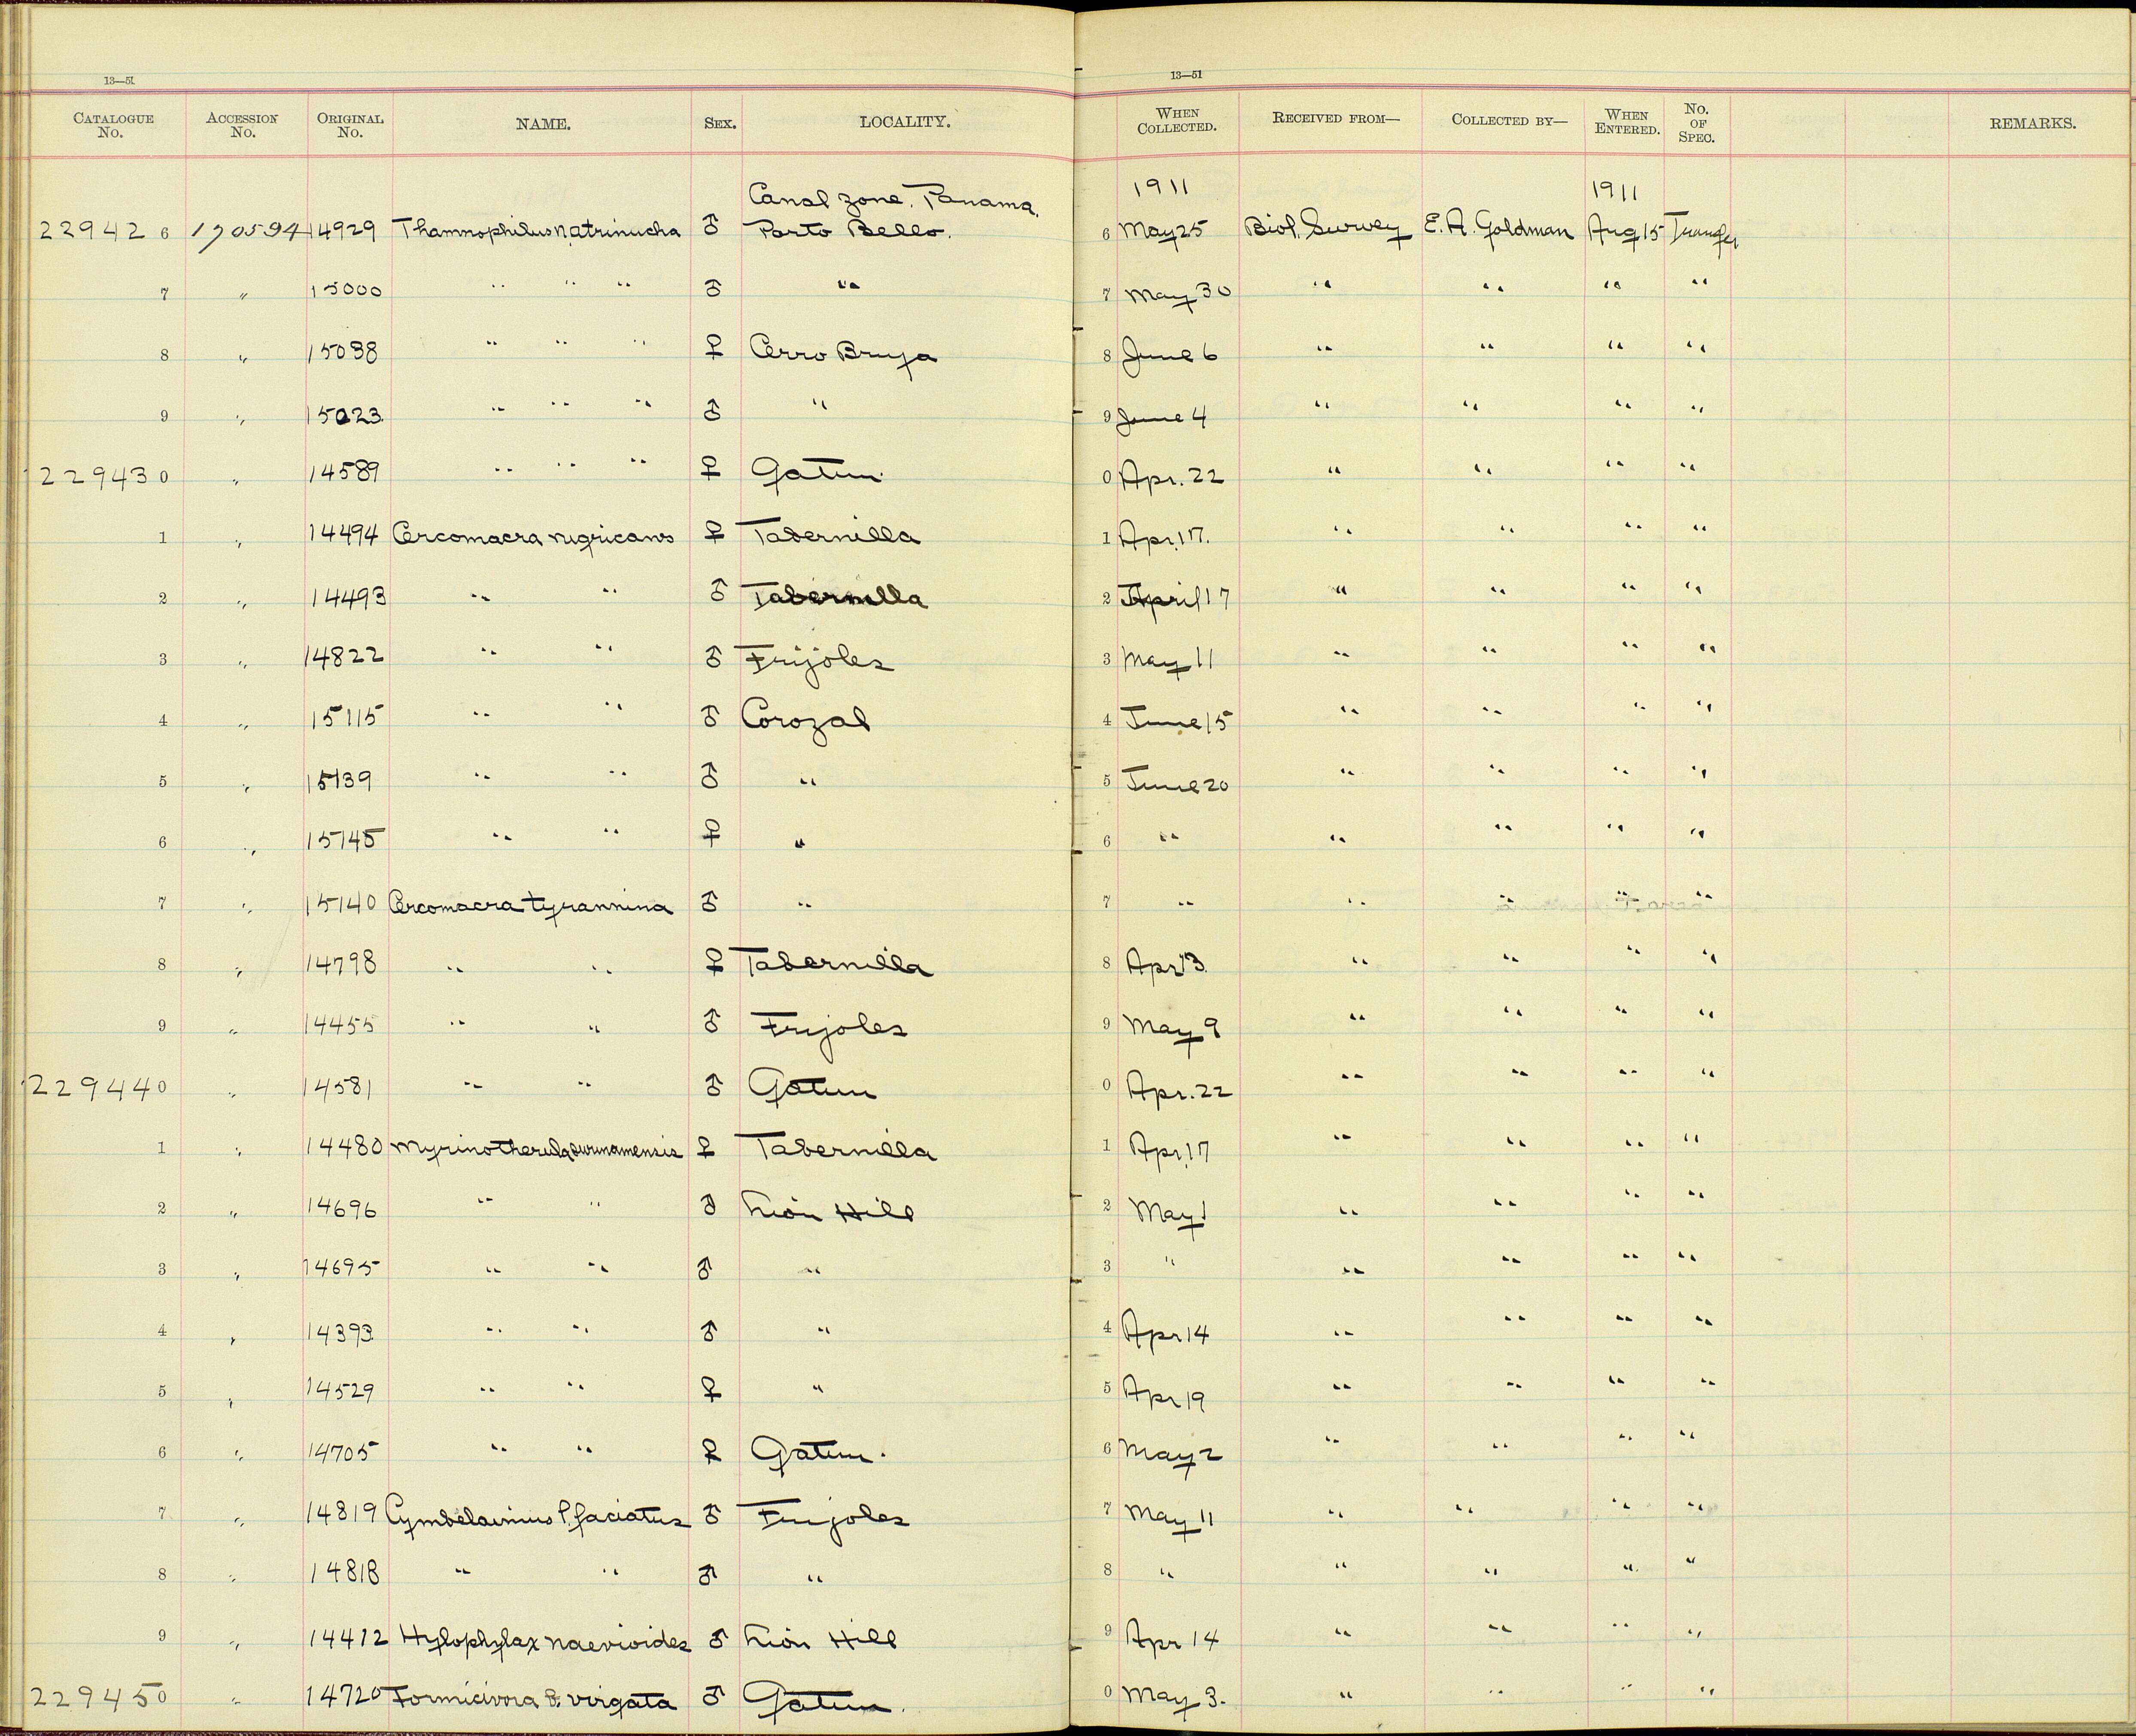 13—51
13—51
CATALOGUE No. ACCESSION No. ORIGINAL No. NAME. SEX. LOCALITY. WHEN COLLECTED. RECEIVED FROM— COLLECTED BY— WHEN ENTERED. No. OF SPEC. REMARKS.
Canal zone, Panama. 1911 1911
229426 170594 14929 Thamnophilus n atrinucha ♂ Porto Bello. 6 May 25 Biol. Survey E. A. Goldman Aug 15 Transfer
7 " 15000 " " " ♂ " 7 May 30 " " " "
8 " 15038 " " " ♀ Cerro Bruja 8 June 6 " " " "
9 " 15023 " " " ♂ " 9 June 4 " " " "
229430 " 14589 " " " ♀ Gatun. 0 Apr. 22 " " " "
1 " 14494 Cercomacra nigricans ♀ Tabernilla 1 Apr. 17. " " " "
2 " 14493 " " ♂ Tabernilla 2 April 17 " " " "
3 " 14822 " " ♂ Frijoles 3 May 11 " " " "
4 " 15115 " " ♂ Corozal 4 June 15 " " " "
5 " 15139 " " ♂ " 5 June 20 " " " "
6 " 15145 " " ♀ " 6 " " " " "
7 " 15140 Cercomacra tyrannina ♂ " 7 " " " " "
8 " 14798 " " ♀ Tabernilla 8 Apr 13 " " " "
9 " 14455 " " ♂ Frijoles 9 May 9 " " " "
229440 " 14581 " " ♂ Gatun 0 Apr. 22 " " " "
1 " 14480 Myrinotherula surinamensis ♀ Tabernilla 1 Apr. 17 " " " "
2 " 14696 " " ♂ Lion Hill 2 May 1 " " " "
3 " 14695 " " ♂ " 3 " " " " "
4 " 14393 " " ♂ " 4 Apr 14 " " " "
5 " 14529 " " ♀ " 5 Apr 19 " " " "
6 " 14705 " " ♀ Gatun. 6 May 2 " " " "
7 " 14819 Cymbelaimus l. faciatus ♂ Frijoles 7 May 11 " " " "
8 " 14818 " " ♂ " 8 " " " " "
9 " 14412 Hylophylax naevioides ♂ Lion Hill 9 Apr 14 " " " "
229450 " 14720 Formicivora B. virgata ♂ Gatun. 0 May 3. " " " "